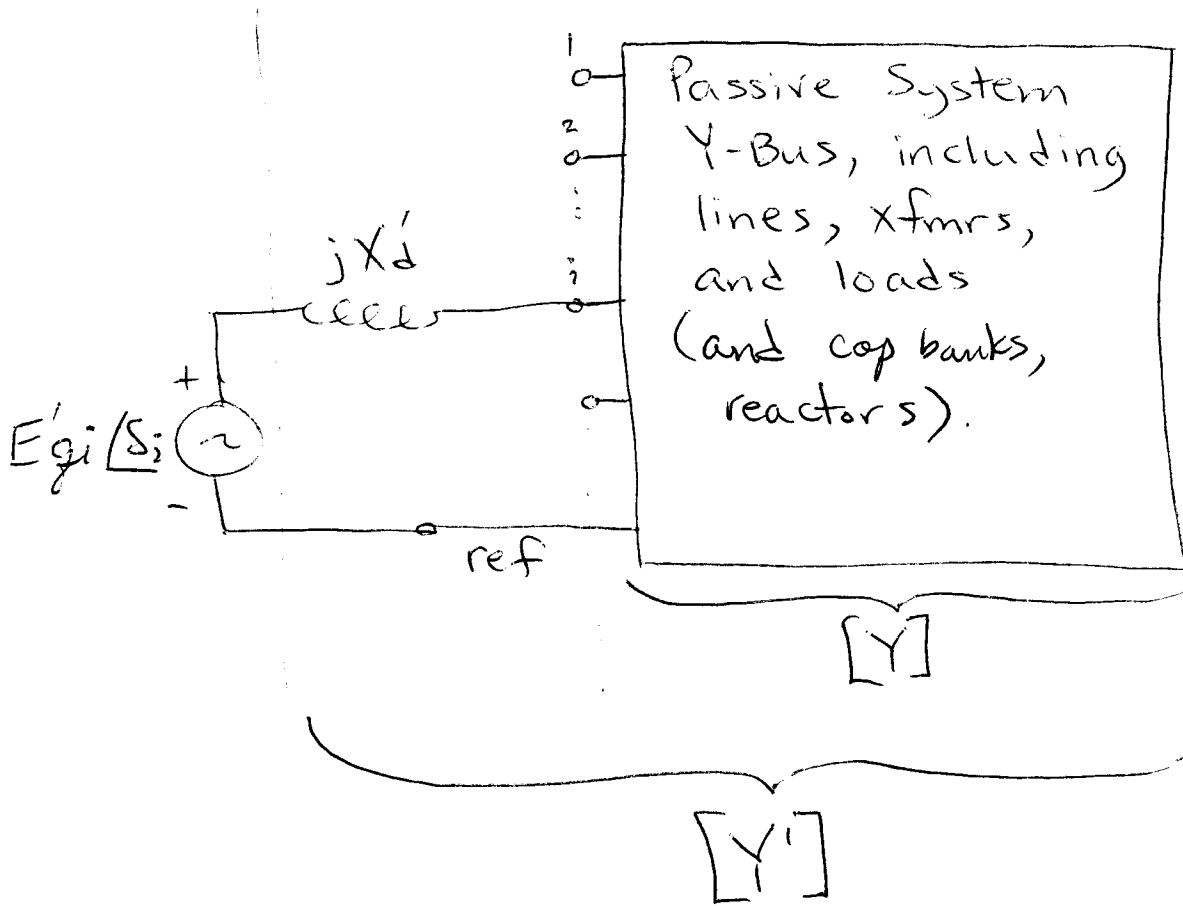 1
Passive System
2
Y-Bus, including
lines, xfmrs,
jXd'
i
and loads
(and cap banks,
reactors).
+
E'gi∠δi
~
-
ref
[Y]
[Y']